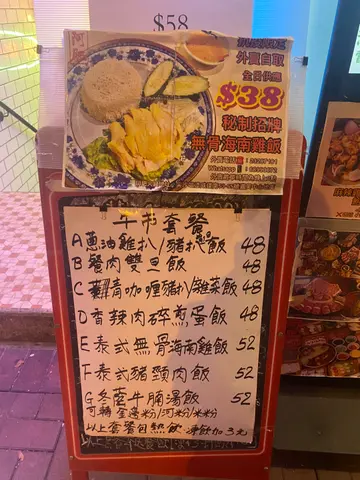 $58
外賣自取
全日供應
$38
秘制招牌
無骨海南雞飯
午市套餐
A 蔥油雞扒/豬扒飯 48
B 餐肉雙旦飯 48
C 青咖喱豬扒/雜菜飯 48
D 香辣肉碎煎蛋飯 48
E 泰式無骨海南雞飯 52
F 泰式豬頸肉飯 52
G 冬蔭牛腩湯飯 52
可轉金邊粉/河粉/米粉
以上套餐包熱飲 凍飲加3元